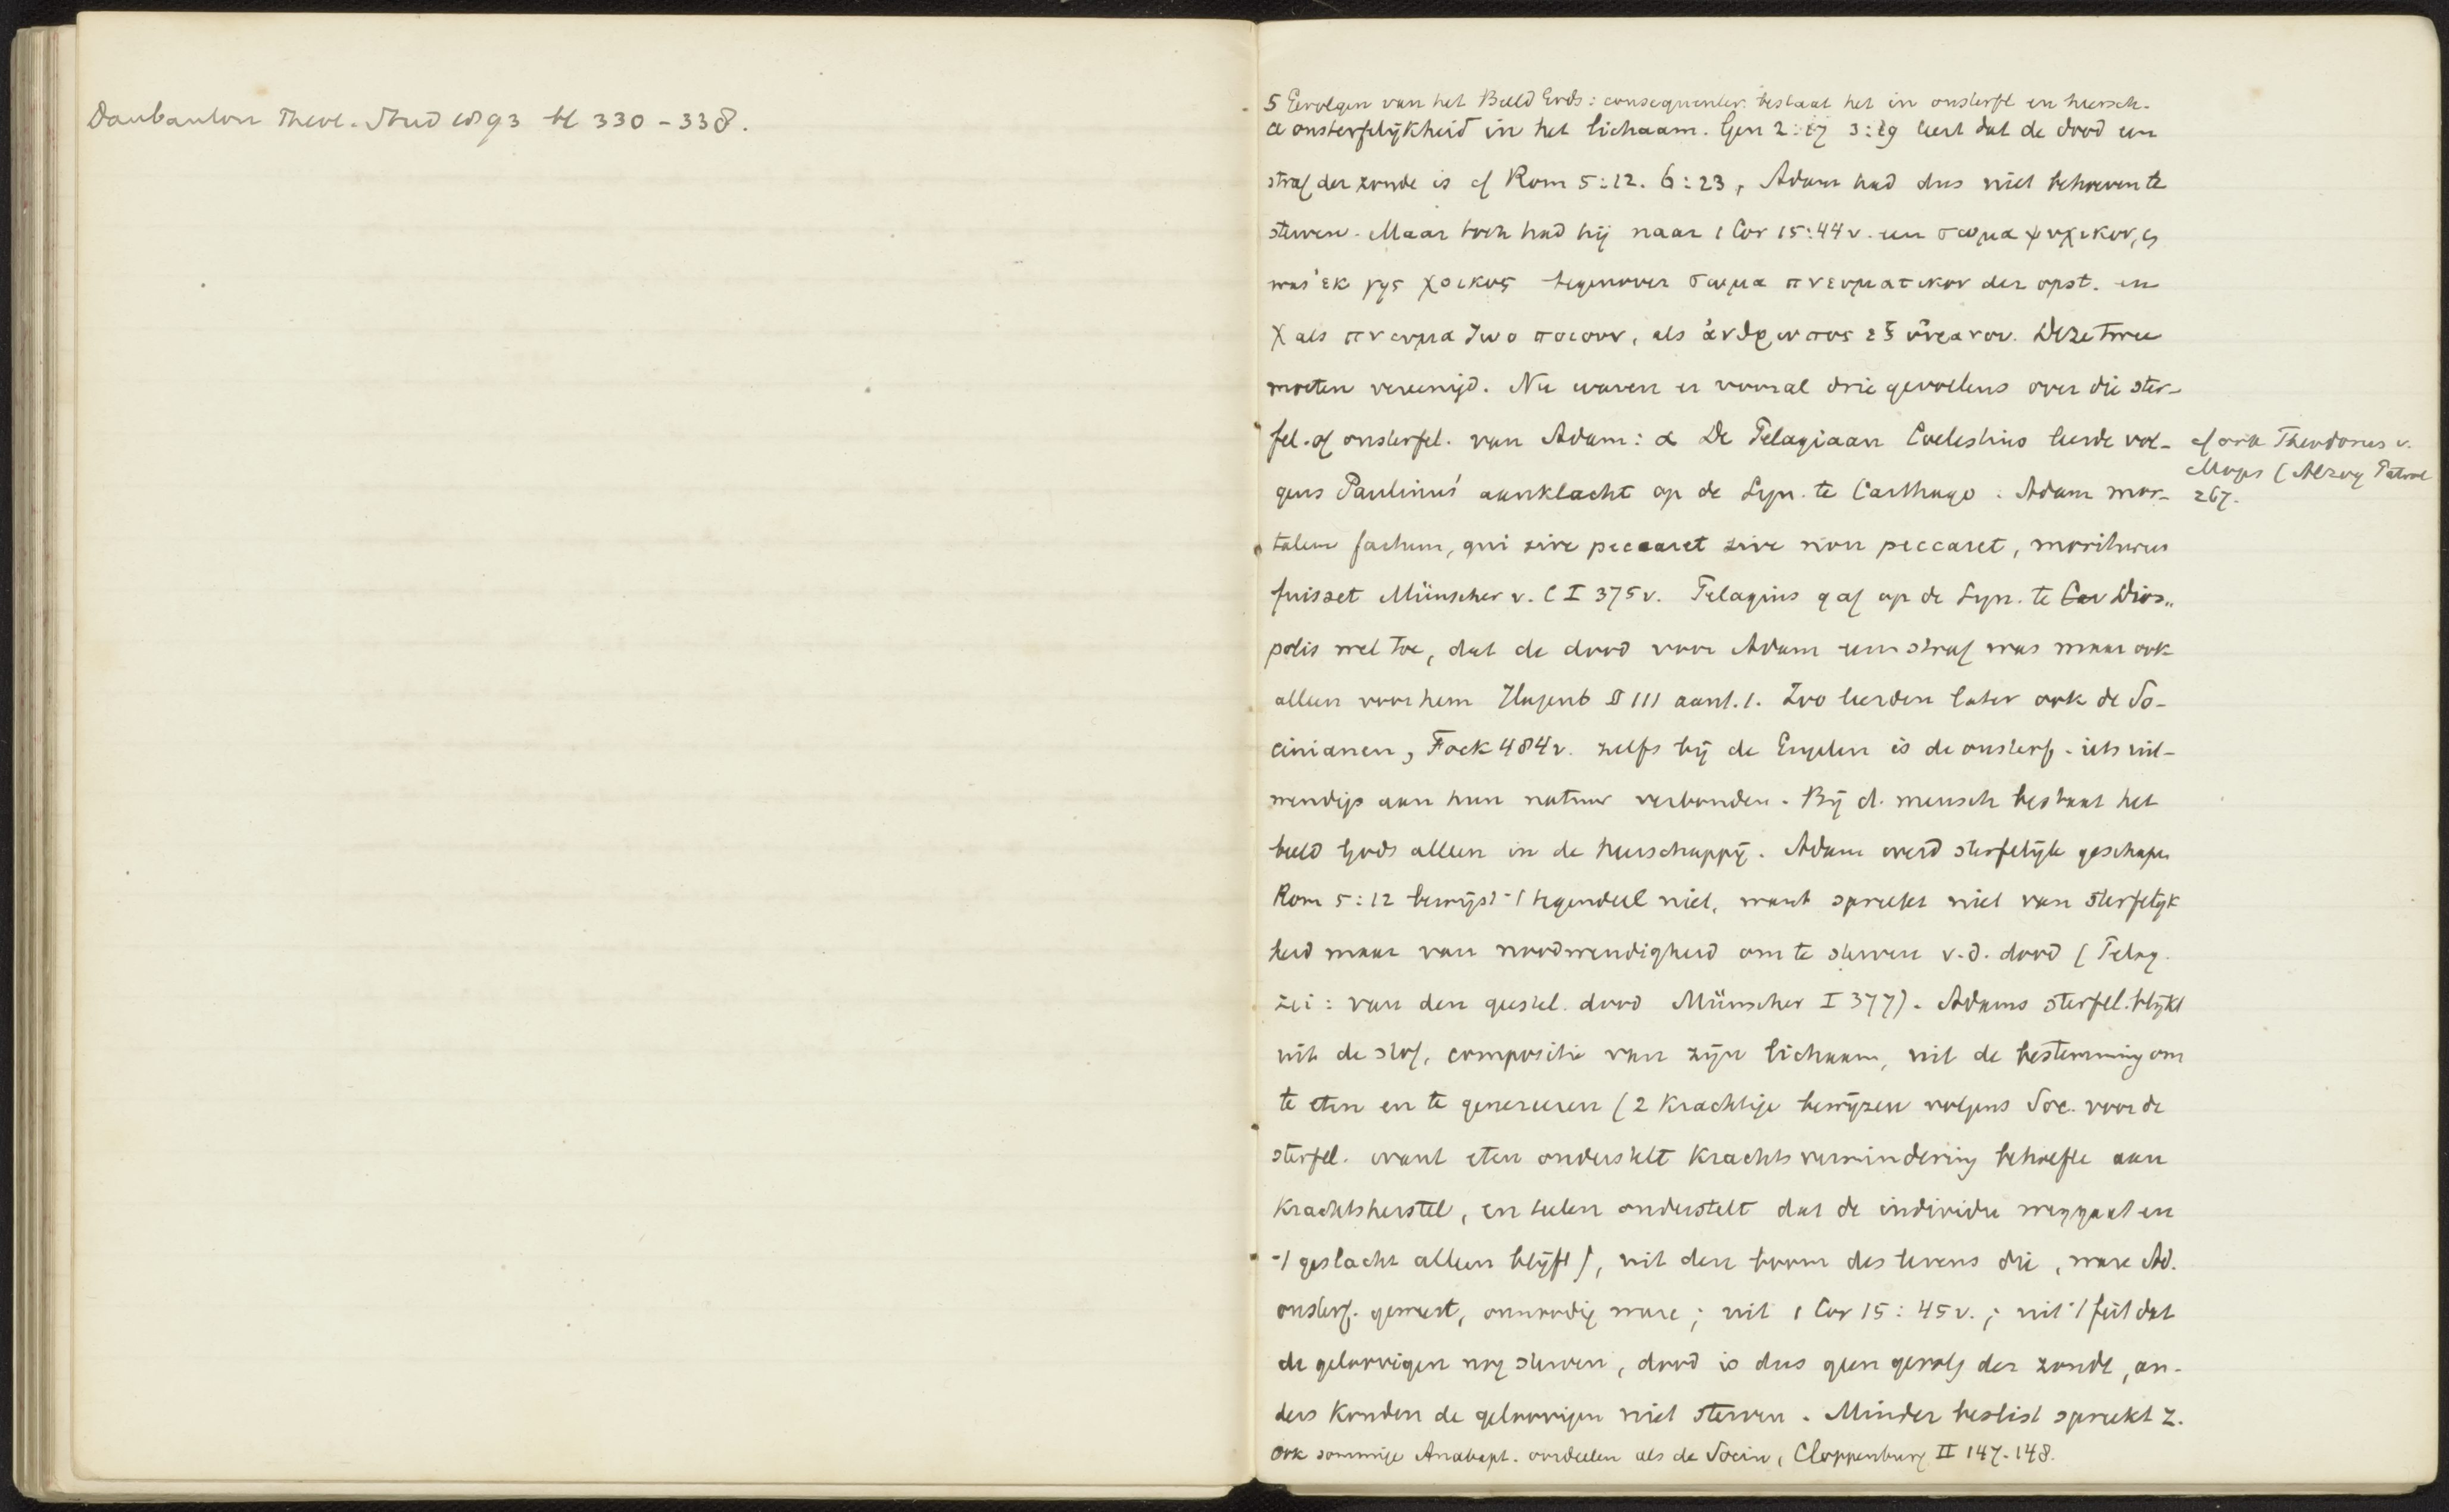 Daubanton Theol. Stud 1893 bl 330-338.
5 Gevolgen van het Beeld Gods: consequenter. bestaat het in onsterfl en heersch.
a onsterfelijkheid in het lichaam. Gen 2:17 3:19 leert dat de dood een
straf der zonde is cf Rom 5:12. 6:23, Adam had dus niet behoeven te
sterven. Maar toch had hij naar 1 Cor 15:44v. een σωμα ψυχικον, en
was ἐκ γης χοικος tegenover σωμα πνευματικον der opst. en
χ als πνευμα ζωοποιουν, als ἀνθρωπος ἐξ οὐρανου. Deze twee
moeten vereenigd. Nu waren er vooral drie gevoelens over die ster-
fel. of onsterfel. van Adam: α De Pelagiaan Coelestius leerde vol-
gens Paulinus' aanklacht op de Syn. te Carthago: Adam mor-
talem factum, qui sive peccaret sive non peccaret, moriturus
fuisset Münscher v. C I 375v. Pelagius gaf op de Syn. te Car Dios„
polis wel toe, dat de dood voor Adam een straf was maar ook
alleen voor hem Hagenb II 111 aant. 1. Zoo leerden later ook de So-
cinianen, Fock 484v. zelfs bij de Engelen is de onsterf. iets uit-
wendigs aan hun natuur verbonden. Bij d. mensch bestaat het
beeld Gods alleen in de heerschappij. Adam werd sterfelijk geschapen
Rom 5:12 bewijst 't tegendeel niet, want spreekt niet van sterfelijk
heid maar van noodwendigheid om te sterven v.d. dood (Pelag.
zei: van den geestel. dood Münscher I 377). Adams sterfel. blijkt
uit de stof, compositie van zijn lichaam, uit de bestemming om
te eten en te genereeren (2 krachtige bewijzen volgens Soc. voor de
sterfel. want eten onderstelt krachtsvermindering behoefte aan
krachtsherstel, en telen onderstelt dat de individu weggaat en
't geslacht alleen blijft), uit den boom des levens die, ware Ad.
onsterf. geweest, onnoodig ware; uit 1 Cor 15:45v.; uit 't feit dat
de geloovigen nog sterven, dood is dus geen gevolg der zonde, an-
ders konden de geloovigen niet sterven. Minder beslist spreekt Z.
Ook sommige Anabapt. oordeelen als de Socin, Cloppenburg II 147-148.
cf ook Theodorus v.
Mops (Alzog Patrol
267.